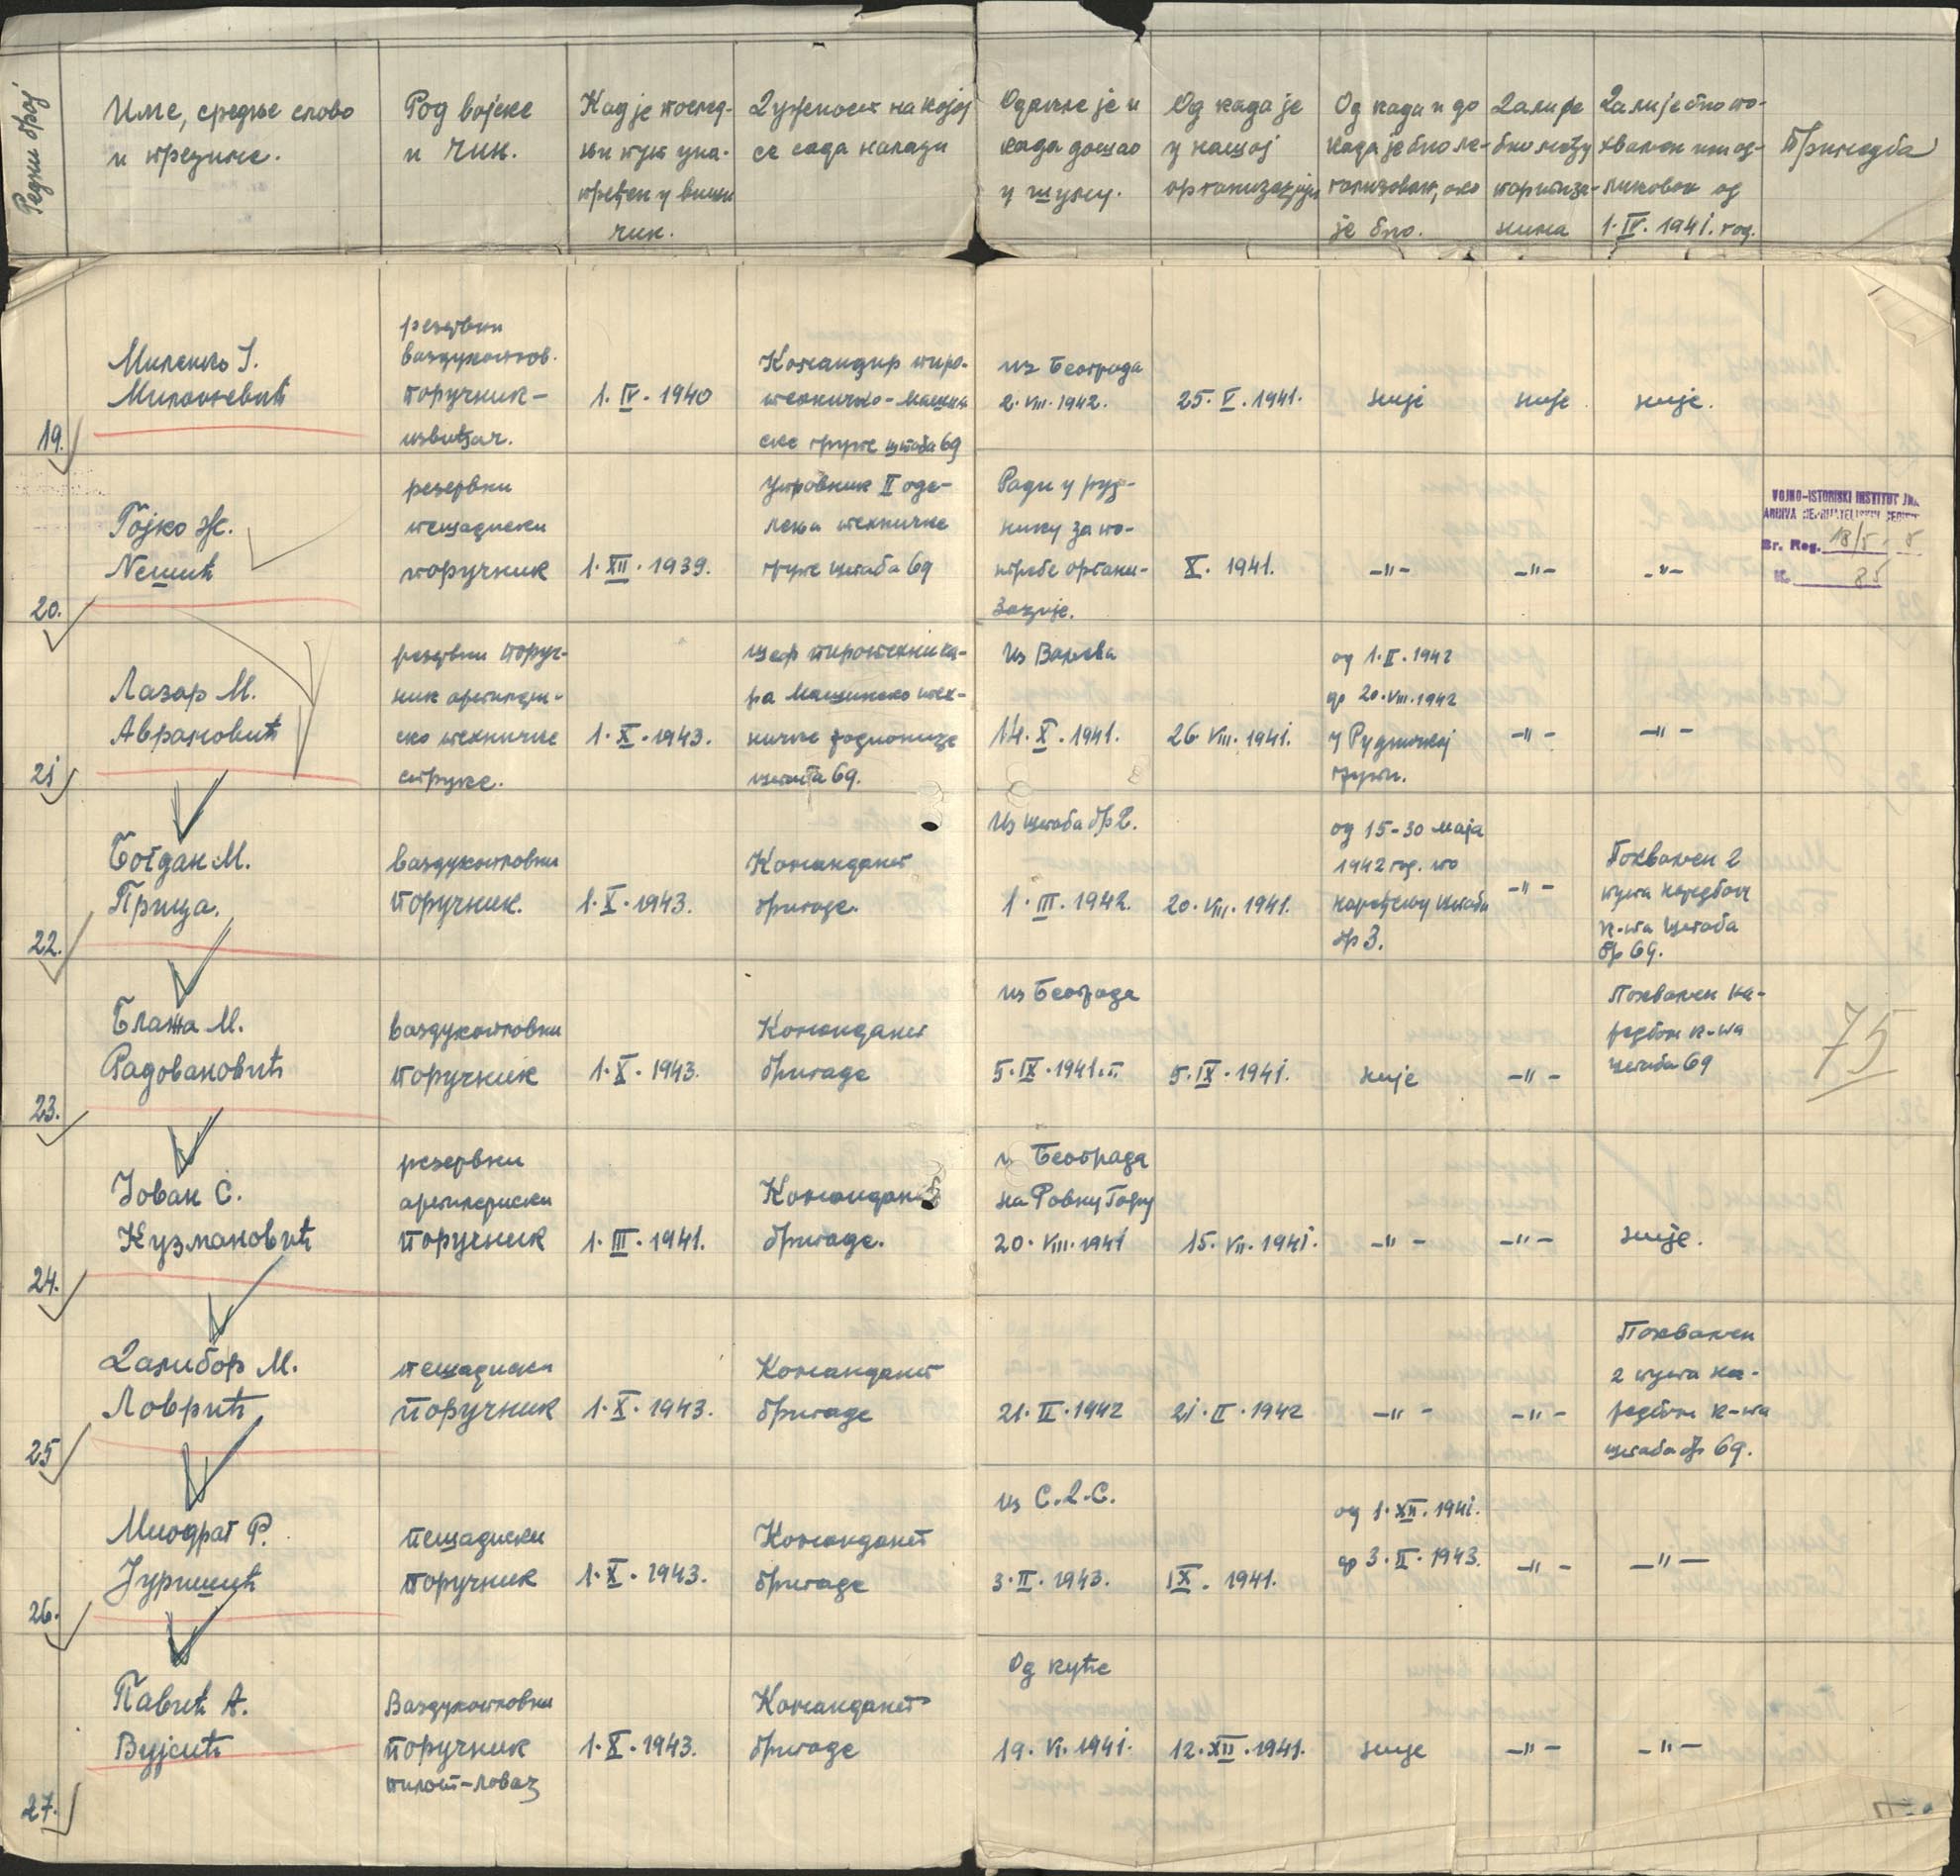 Редни број
Име, средње слово
и презиме.
Род војске
и чин.
Кад је послед-
њи пут уна-
пређен у виши
чин.
Дужност на којој
се сада налази
Одакле је и
када дошао
у шуму.
Од када је
у нашој
организацији
Од када и до
када је био ле-
гализован, ако
је био.
Дали је
био међу
партиза-
нима
Дали је био по-
хваљен или од-
ликован од
1. IV. 1941. год.
Примедба
19.
Миленко Ј.
Милошевић
резервни
ваздухопов.
поручник-
извиђач.
1. IV. 1940
Командир пиро-
технично-машин
ске групе штаба 69
из Београда
2. VIII. 1942.
25. V. 1941.
није
није
није.
20.
Гојко Ж.
Нешић
резервни
пешадиски
поручник
1. XII. 1939.
Управник II оде-
лења техничке
групе штаба 69
Ради у руд-
нику за по-
требе органи-
зације.
X. 1941.
-"-
-"-
-"-
VOJNO-ISTORISKI INSTITUT JNA
ARHIVA NEPRIJATELJSKIH JEDINICA
Br. Reg. 18/5-8
K. 85
21
Лазар М.
Аврамовић
резервни поруч-
ник артиљери-
ско техничке
струке.
1. X. 1943.
шеф пиротехнича-
ра машинско тех-
ничке радионице
штаба 69.
Из Ваљева
14. X. 1941.
26. VIII. 1941.
од 1. II. 1942
до 20. VIII. 1942
у Рудничкој
групи.
-"-
-"-
22.
Богдан М.
Прица.
ваздухопловни
поручник.
1. X. 1943.
Командант
бригаде.
Из штаба бр 2.
1. III. 1942.
20. VIII. 1941.
од 15-30 маја
1942 год. по
наређењу штаба
бр 3.
-"-
Похваљен 2
пута наредбом
к-та штаба
бр 69.
23.
Блажа М.
Радовановић
ваздухопловни
поручник
1. X. 1943.
Командант
бригаде
из Београда
5. IX. 1941. г.
5. IX. 1941.
није
-"-
Похваљен на-
редбом к-та
штаба 69
75
24.
Јован С.
Кузмановић
резервни
артиљериски
поручник
1. III. 1941.
Командант
бригаде.
из Београда
на Равну Гору
20. VIII. 1941
15. VII. 1941.
-"-
-"-
није.
25
Далибор М.
Ловрић
пешадиски
поручник
1. X. 1943.
Командант
бригаде
21. II. 1942
21. II. 1942
-"-
-"-
Похваљен
2 пута на-
редбом к-та
штаба бр 69.
26.
Миодраг Р.
Јуришић
пешадиски
поручник
1. X. 1943.
Командант
бригаде
из С.Д.С.
3. II. 1943.
IX. 1941.
од 1. XII. 1941.
до 3. II. 1943.
-"-
-"-
27.
Павић А.
Вујсић
Ваздухопловни
поручник
пилот-ловац
1. X. 1943.
Командант
бригаде
Од куће
19. VI. 1941.
12. XII. 1941.
није
-"-
-"-